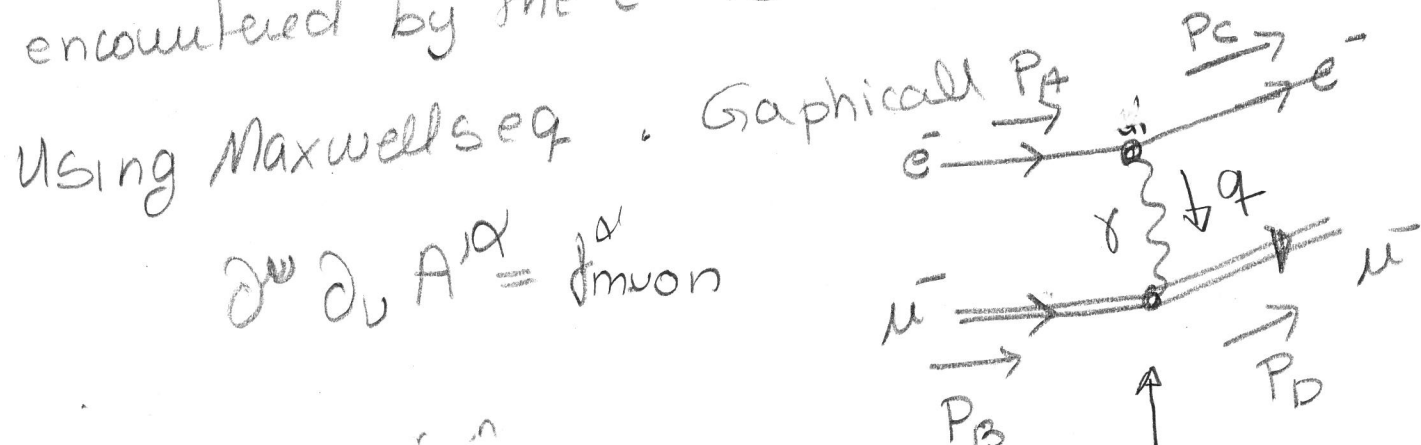 encountered by the
Using Maxwells eq. Gaphicall
∂^ν ∂_ν A^α = j^α muon
P_A
P_C
e^-
e^-
γ
q
μ^-
μ^-
P_B
P_D